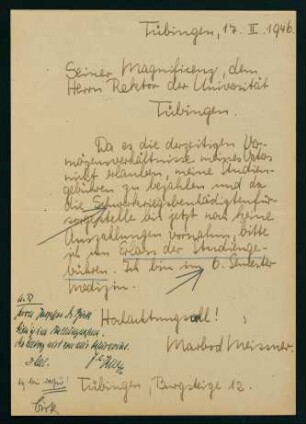 Tübingen, 17. II. 1946.
Seiner Magnifizenz, dem
Herrn Rektor der Universität
Tübingen.
Da es die derzeitigen Ver-
mögensverhältnisse meines Vaters
nicht erlauben, meine Studien-
gebühren zu bezahlen und da
die Schwerkriegsbeschädigtenfür-
sorgestelle bis jetzt noch keine
Auszahlungen vornahm, bitte
ich um Erlass der Studienge-
bühren. Ich bin im 6. Semester
Medizin.
Hochachtungsvoll!
Marbod Meissner.
Tübingen, Burgsteige 12.
Herrn
Birk